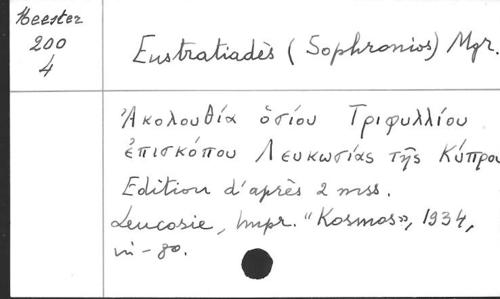 Meester
200
4
Eustratiadès (Sophronios) Mgr.
Ἀκολουθία ὁσίου Τριφυλλίου
ἐπισκόπου Λευκωσίας τῆς Κύπρου
Edition d'après 2 mss.
Leucosie, Impr. "Kosmos", 1934,
in-8o.